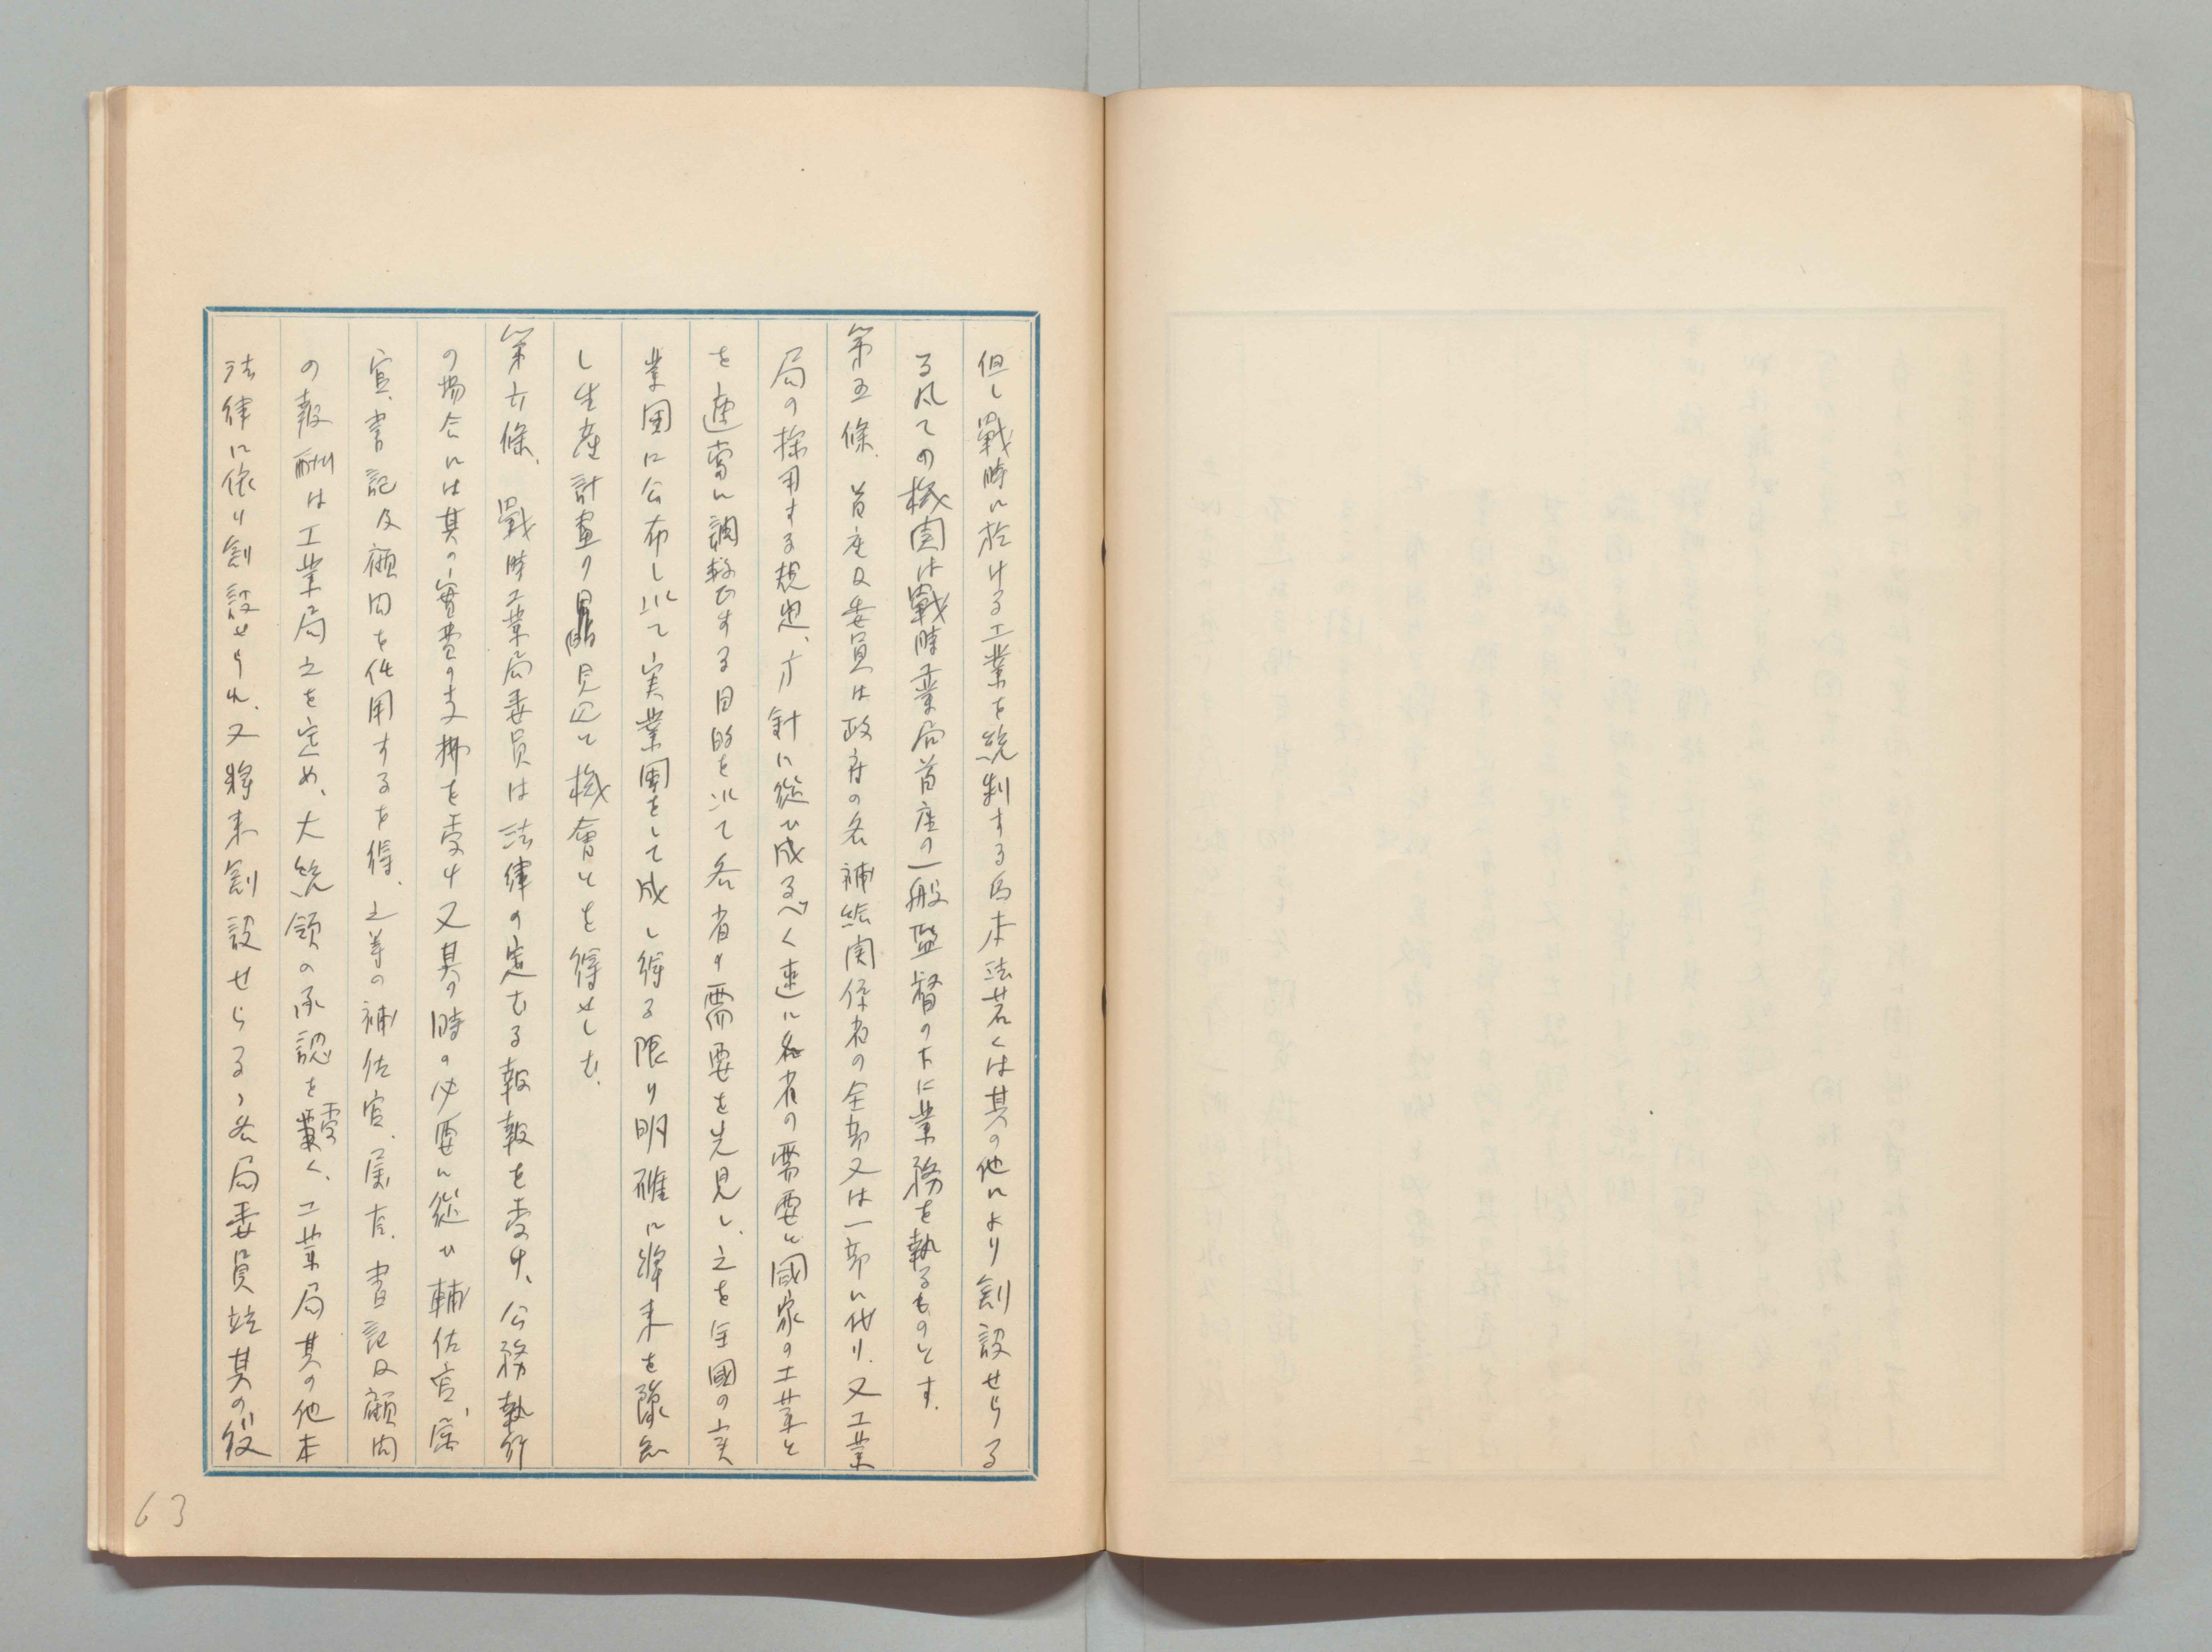 但し戰時に於ける工業を統制する為本法若くは其の他により創設せらる
る凡ての機関は戰時工業局首座の一般監督の下に業務を執るものとす.
第五條. 首座及委員は政府の各補給関係者の全部又は一部に代り. 又工業
局の採用する規也、方針に從ひ成るべく速に各省の需要と國家の工業と
を適當に調整する目的を以て各省の需要を先見し、之を全國の実
業團に公布し以て実業團をして成し得る限り明確に將来を豫知
し生産計畫の見込て機會とを得せしむ.
第六條. 戰時工業局委員は法律の定むる報報を受け、公務執行
の場合には其の實費の支拂を受け又其の時の必要に從ひ輔佐官、属
官、書記及顧問を任用するを得、之等の補佐官、属官、書記及顧問
の報酬は工業局之を定め、大統領の承認を受く、工業局其の他本
法律に依り創設せられ、又將来創設せらるゝ各局委員竝其の役
63